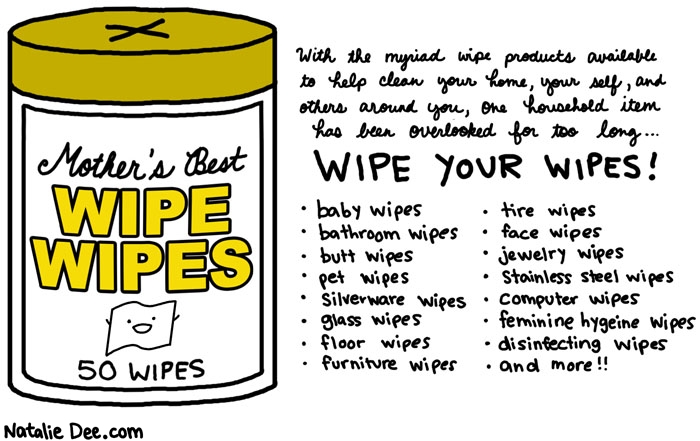 Mother's Best
WIPE
WIPES
50 WIPES
With the myriad wipe products available
to help clean your home, your self, and
others around you, one household item
has been overlooked for too long...
WIPE YOUR WIPES!
• baby wipes
• bathroom wipes
• butt wipes
• pet wipes
• Silverware wipes
• glass wipes
• floor wipes
• furniture wipes
• tire wipes
• face wipes
• jewelry wipes
• Stainless steel wipes
• computer wipes
• feminine hygeine wipes
• disinfecting wipes
• and more!!
Natalie Dee.com